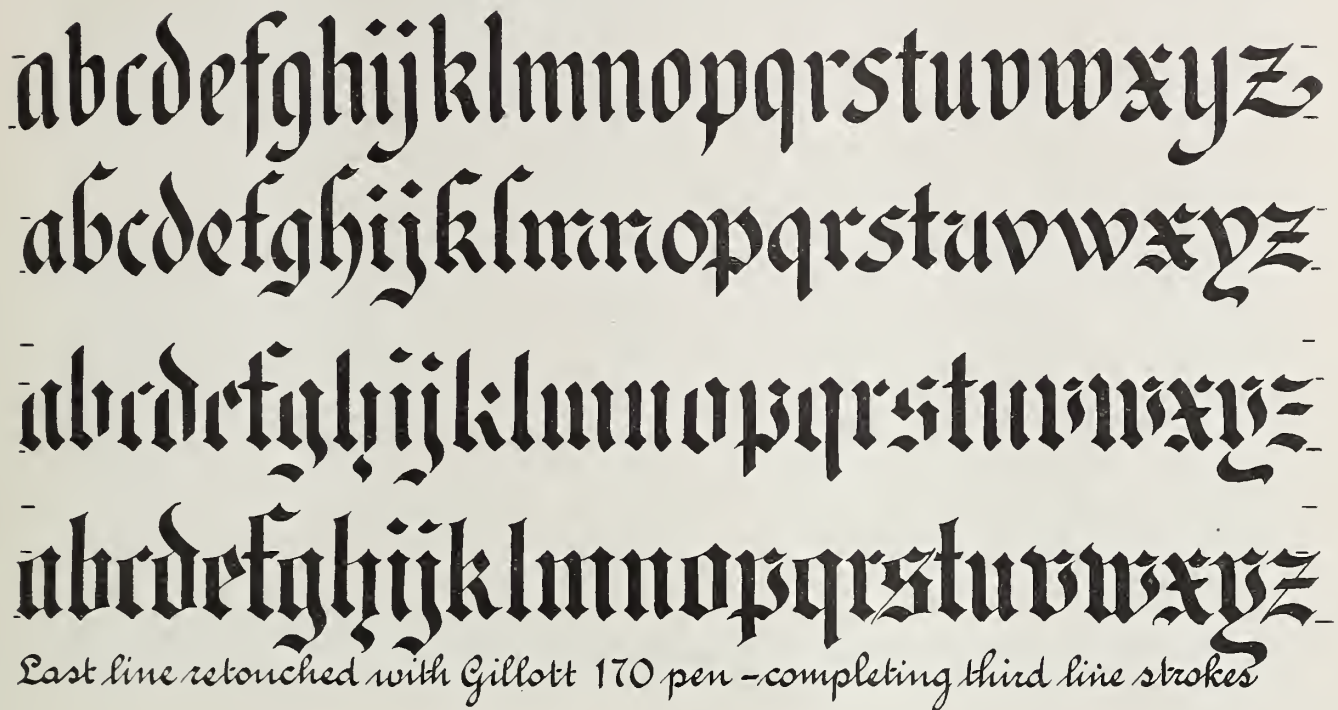 abcdefghijklmnopqrstuvwxyz
abcdefghijklmnopqrstuvwxyz
abcdefghijklmnopqrstuvwxyz
abcdefghijklmnopqrstuvwxyz
Last line retouched with Gillott 170 pen - completing third line strokes